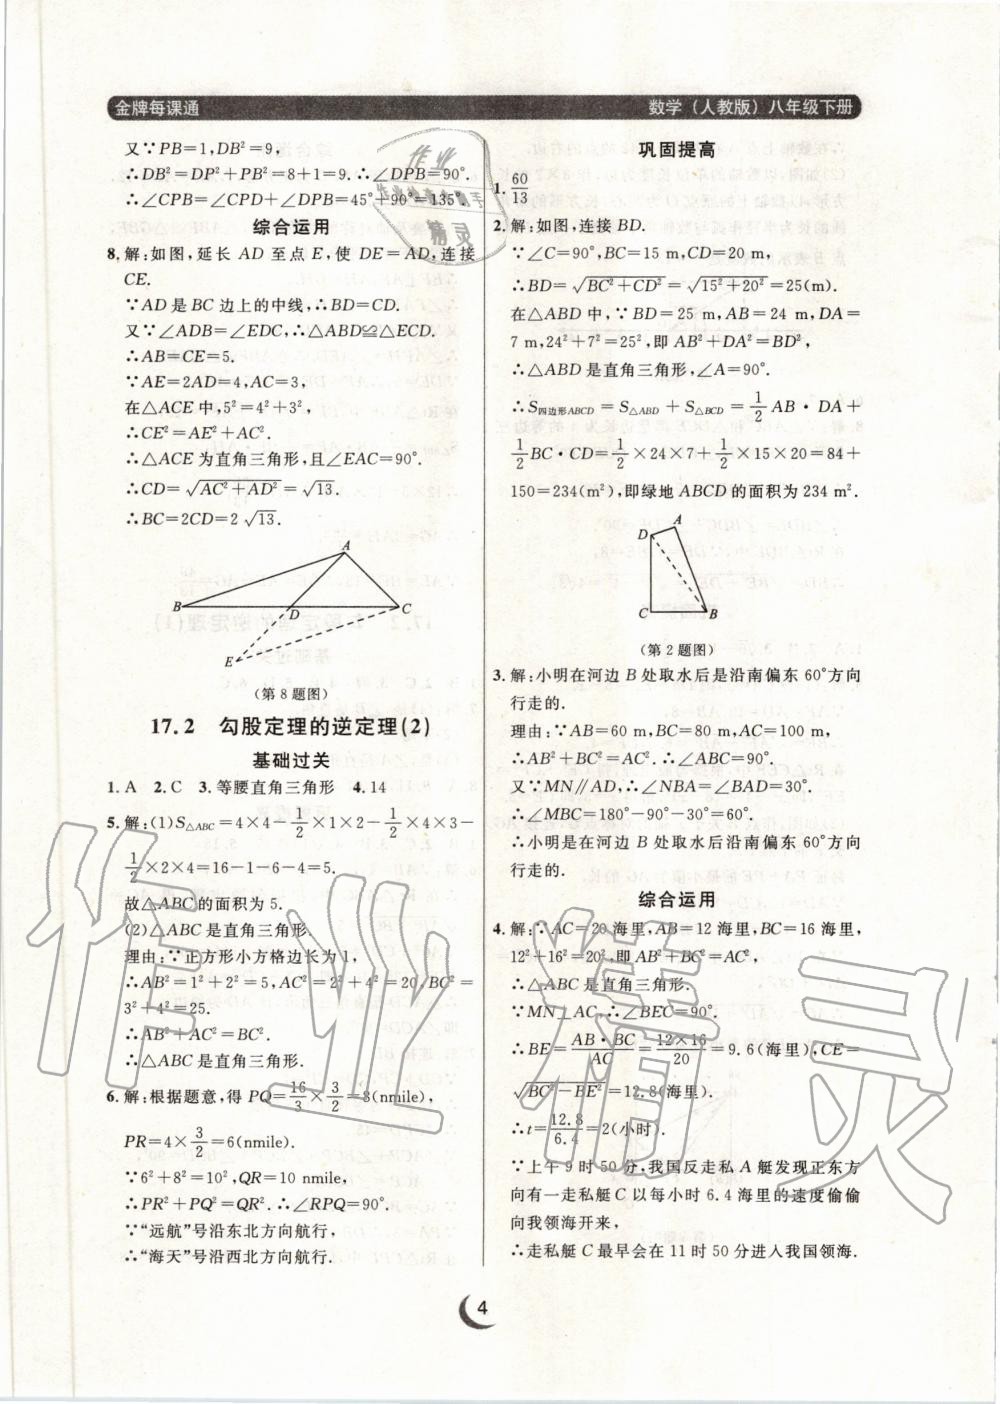 金牌每课通
数学（人教版）八年级下册
又∵PB=1,DB²=9,
∴DB²=DP²+PB²=8+1=9.∴∠DPB=90°.
∴∠CPB=∠CPD+∠DPB=45°+90°=135°.
综合运用
8.解:如图,延长 AD 至点 E,使 DE=AD,连接
CE.
∵AD 是 BC 边上的中线,∴BD=CD.
又∵∠ADB=∠EDC,∴△ABD≌△ECD.
∴AB=CE=5.
∵AE=2AD=4,AC=3,
在△ACE 中,5²=4²+3²,
∴CE²=AE²+AC².
∴△ACE 为直角三角形,且∠EAC=90°.
∴CD=√(AC²+AD²)=√13.
∴BC=2CD=2√13.
A
B
D
C
E
(第 8 题图)
17.2 勾股定理的逆定理(2)
基础过关
1.A 2.C 3.等腰直角三角形 4.14
5.解:(1)S△ABC=4×4-1/2×1×2-1/2×4×3-
1/2×2×4=16-1-6-4=5.
故△ABC 的面积为 5.
(2)△ABC 是直角三角形.
理由:∵正方形小方格边长为 1,
∴AB²=1²+2²=5,AC²=2²+4²=20,BC²=
3²+4²=25.
∴AB²+AC²=BC².
∴△ABC 是直角三角形.
6.解:根据题意,得 PQ=16/3×3/2=8(nmile),
PR=4×3/2=6(nmile).
∵6²+8²=10²,QR=10 nmile,
∴PR²+PQ²=QR².∴∠RPQ=90°.
∵“远航”号沿东北方向航行,
∴“海天”号沿西北方向航行.
巩固提高
1.60/13
2.解:如图,连接 BD.
∵∠C=90°,BC=15 m,CD=20 m,
∴BD=√(BC²+CD²)=√(15²+20²)=25(m).
在△ABD 中,∵BD=25 m,AB=24 m,DA=
7 m,24²+7²=25²,即 AB²+DA²=BD²,
∴△ABD 是直角三角形,∠A=90°.
∴S四边形ABCD=S△ABD+S△BCD=1/2AB·DA+
1/2BC·CD=1/2×24×7+1/2×15×20=84+
150=234(m²),即绿地 ABCD 的面积为 234 m².
D
A
C
B
(第 2 题图)
3.解:小明在河边 B 处取水后是沿南偏东 60°方向
行走的.
理由:∵AB=60 m,BC=80 m,AC=100 m,
∴AB²+BC²=AC².∴∠ABC=90°.
又∵MN∥AD,∴∠NBA=∠BAD=30°.
∴∠MBC=180°-90°-30°=60°.
∴小明是在河边 B 处取水后沿南偏东 60°方向
行走的.
综合运用
4.解:∵AC=20 海里,AB=12 海里,BC=16 海里,
12²+16²=20²,即 AB²+BC²=AC²,
∴△ABC 是直角三角形.
∵MN⊥AC,∴∠BEC=90°.
∴BE=AB·BC/AC=12×16/20=9.6(海里),CE=
√(BC²-BE²)=12.8(海里).
∴t=12.8/6.4=2(小时).
∵上午 9 时 50 分,我国反走私 A 艇发现正东方
向有一走私艇 C 以每小时 6.4 海里的速度偷偷
向我领海开来,
∴走私艇 C 最早会在 11 时 50 分进入我国领海.
4
作业精灵